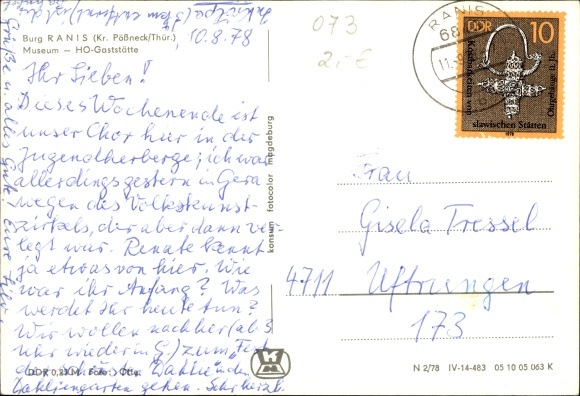 10.8.78
Burg RANIS (Kr. Pößneck/Thür.)
Museum — HO-Gaststätte
Ihr Lieben!
Dieses Wochenende ist
unser Chor hier in der
Jugendherberge; ich war
allerdings gestern in Gera
wegen des Volkskunst-
zirkels, der aber dann ver-
legt war. Renate kennt
ja etwas von hier. Wie
war ihr Anfang? Was
werdet Ihr heute tun?
Wir wollen nachher (ab 3
Uhr wieder in G.) zum "Fest
der Dahlie" in den
Dahliengarten gehen. Sehr herzl.
Grüße u. alles Gute Eure
DDR 0,20 M Foto:
konsum fotocolor magdeburg
073
2,- €
RANIS
68
11.8
DDR 10
Kostbarkeiten von
slawischen Stätten
Ohrgehänge 11. Jh.
1978
Frau
Gisela Tressel
4711 Uftrungen
173
N 2/78 IV-14-483 05 10 05 063 K